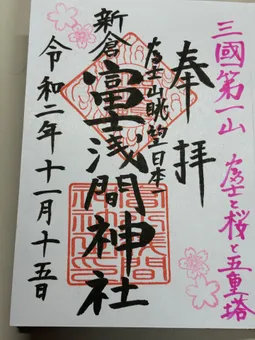 三國第一山 富士と桜と五重塔
奉拝
富士山眺望日本一
新倉
富士浅間神社
令和二年十一月十五日